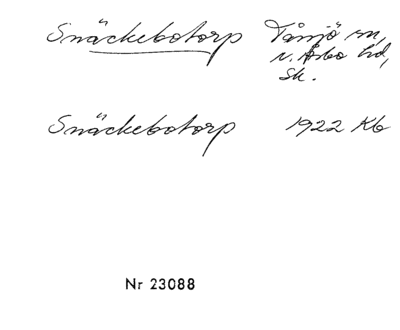 Snäckebotorp Tåsjö sn,
v. Åsbo hd,
Sk.
Snäckebotorp 1922 Kb
Nr 23088